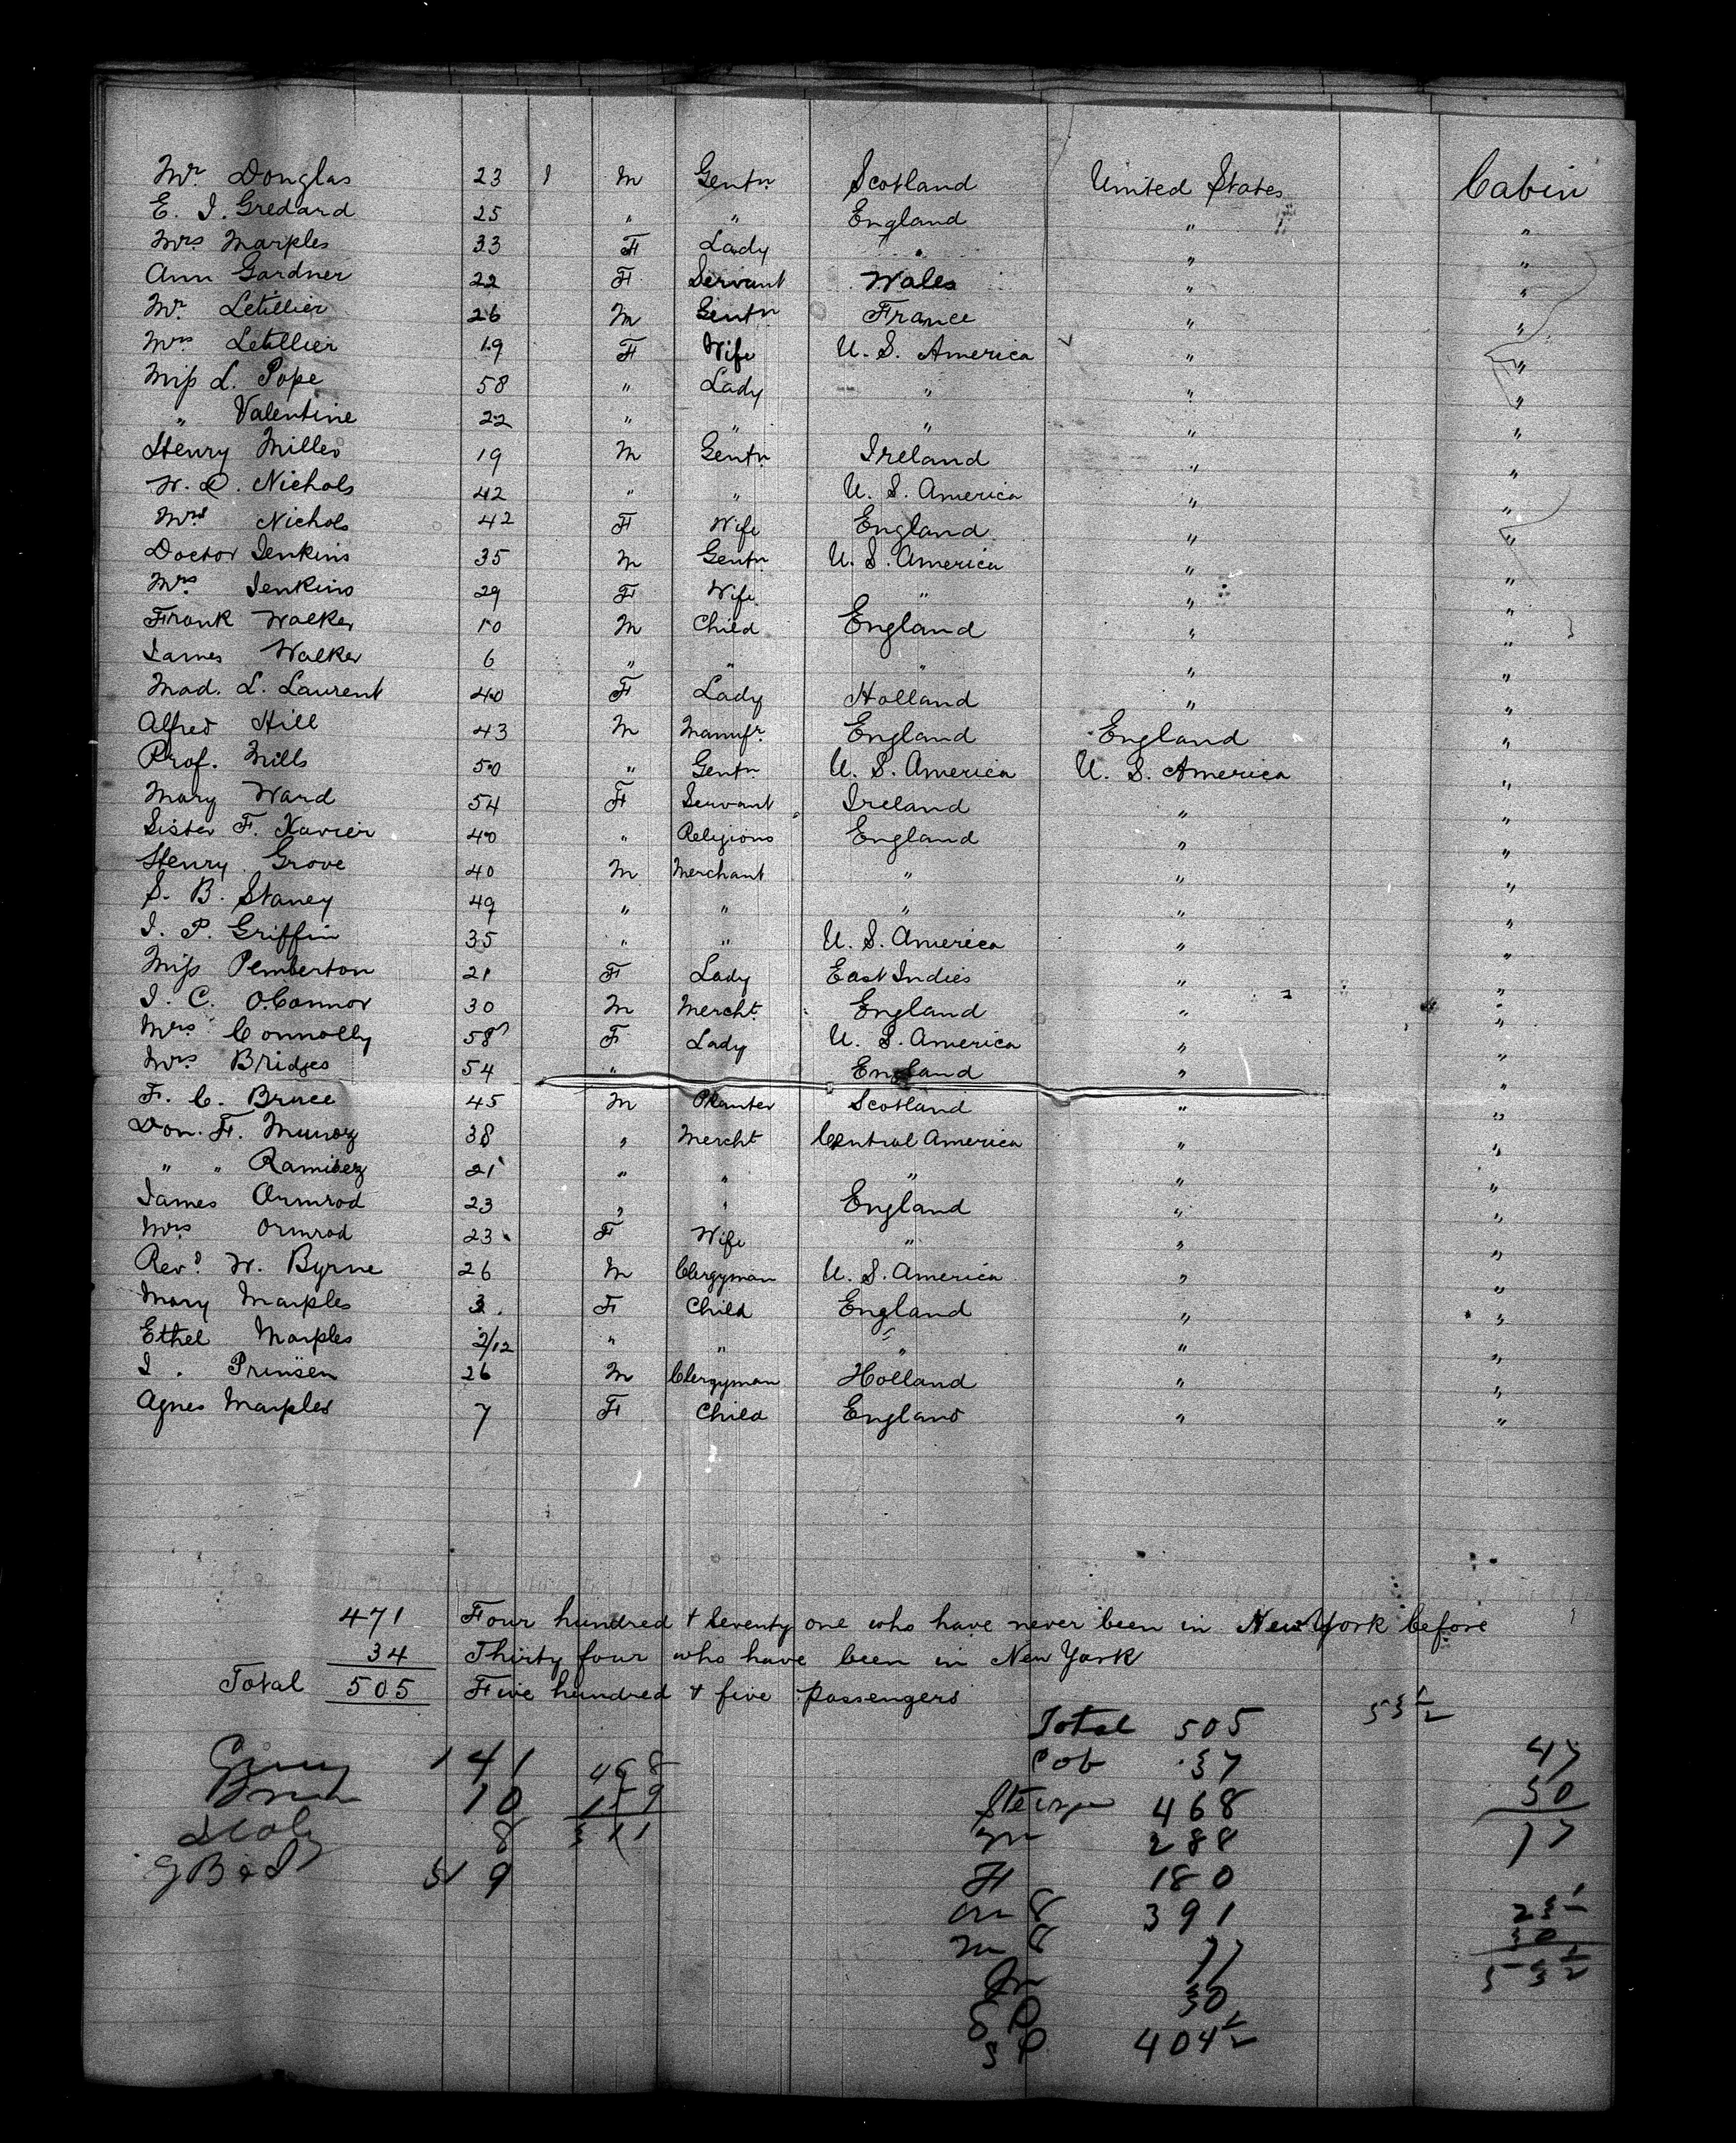 Mr. Douglas 23 1 M Gentn Scotland United States Cabin
E. I. Gredard 25 " " England " "
Mrs Marples 33 F Lady " " "
Ann Gardner 22 F Servant Wales " "
Mr. Letillier 26 M Gentn France " "
Mrs Letillier 19 F Wife U. S. America " "
Miss L. Pope 58 " Lady " " "
" Valentine 22 " " " " "
Henry Miller 19 M Gentn Ireland " "
W. D. Nichols 42 " " U. S. America " "
Mrs Nichols 42 F Wife England " "
Doctor Jenkins 35 M Gentn U. S. America " "
Mrs. Jenkins 29 F Wife " " "
Frank Walker 10 M Child England " "
James Walker 6 " " " " "
Mad. L. Laurent 40 F Lady Holland " "
Alfred Hill 43 M Manufr. England England "
Prof. Mills 50 " Gentn U. S. America U. S. America "
Mary Ward 54 F Servant Ireland " "
Sister F. Xavier 40 " Religious England " "
Henry Grove 40 M Merchant " " "
S. B. Staney 49 " " " " "
J. P. Griffin 35 " " U. S. America " "
Miss Pemberton 21 F Lady East Indies " "
J. C. O'Connor 30 M Mercht. England " "
Mrs Connolly 58 F Lady U. S. America " "
Mrs Bridges 54 " England " "
F. C. Bruce 45 M Planter Scotland " "
Don. F. Munoz 38 " Mercht Central America " "
" " Ramirez 21 " " " " "
James Ormrod 23 " " England " "
Mrs Ormrod 23 F Wife " " "
Revd. W. Byrne 26 M Clergyman U. S. America " "
Mary Marples 3 F Child England " "
Ethel Marples 2/12 " " " " "
J. Prinsen 26 M Clergyman Holland " "
Agnes Marples 7 F Child England " "
471 Four hundred & seventy one who have never been in New York before
34 Thirty four who have been in New York
Total 505 Five hundred & five passengers
Total 505 53½
Cab 37 47
141 468 30
10 Steerage 468 77
8 311 288
G B & I 9 F 180
391
77
30 53½
404½